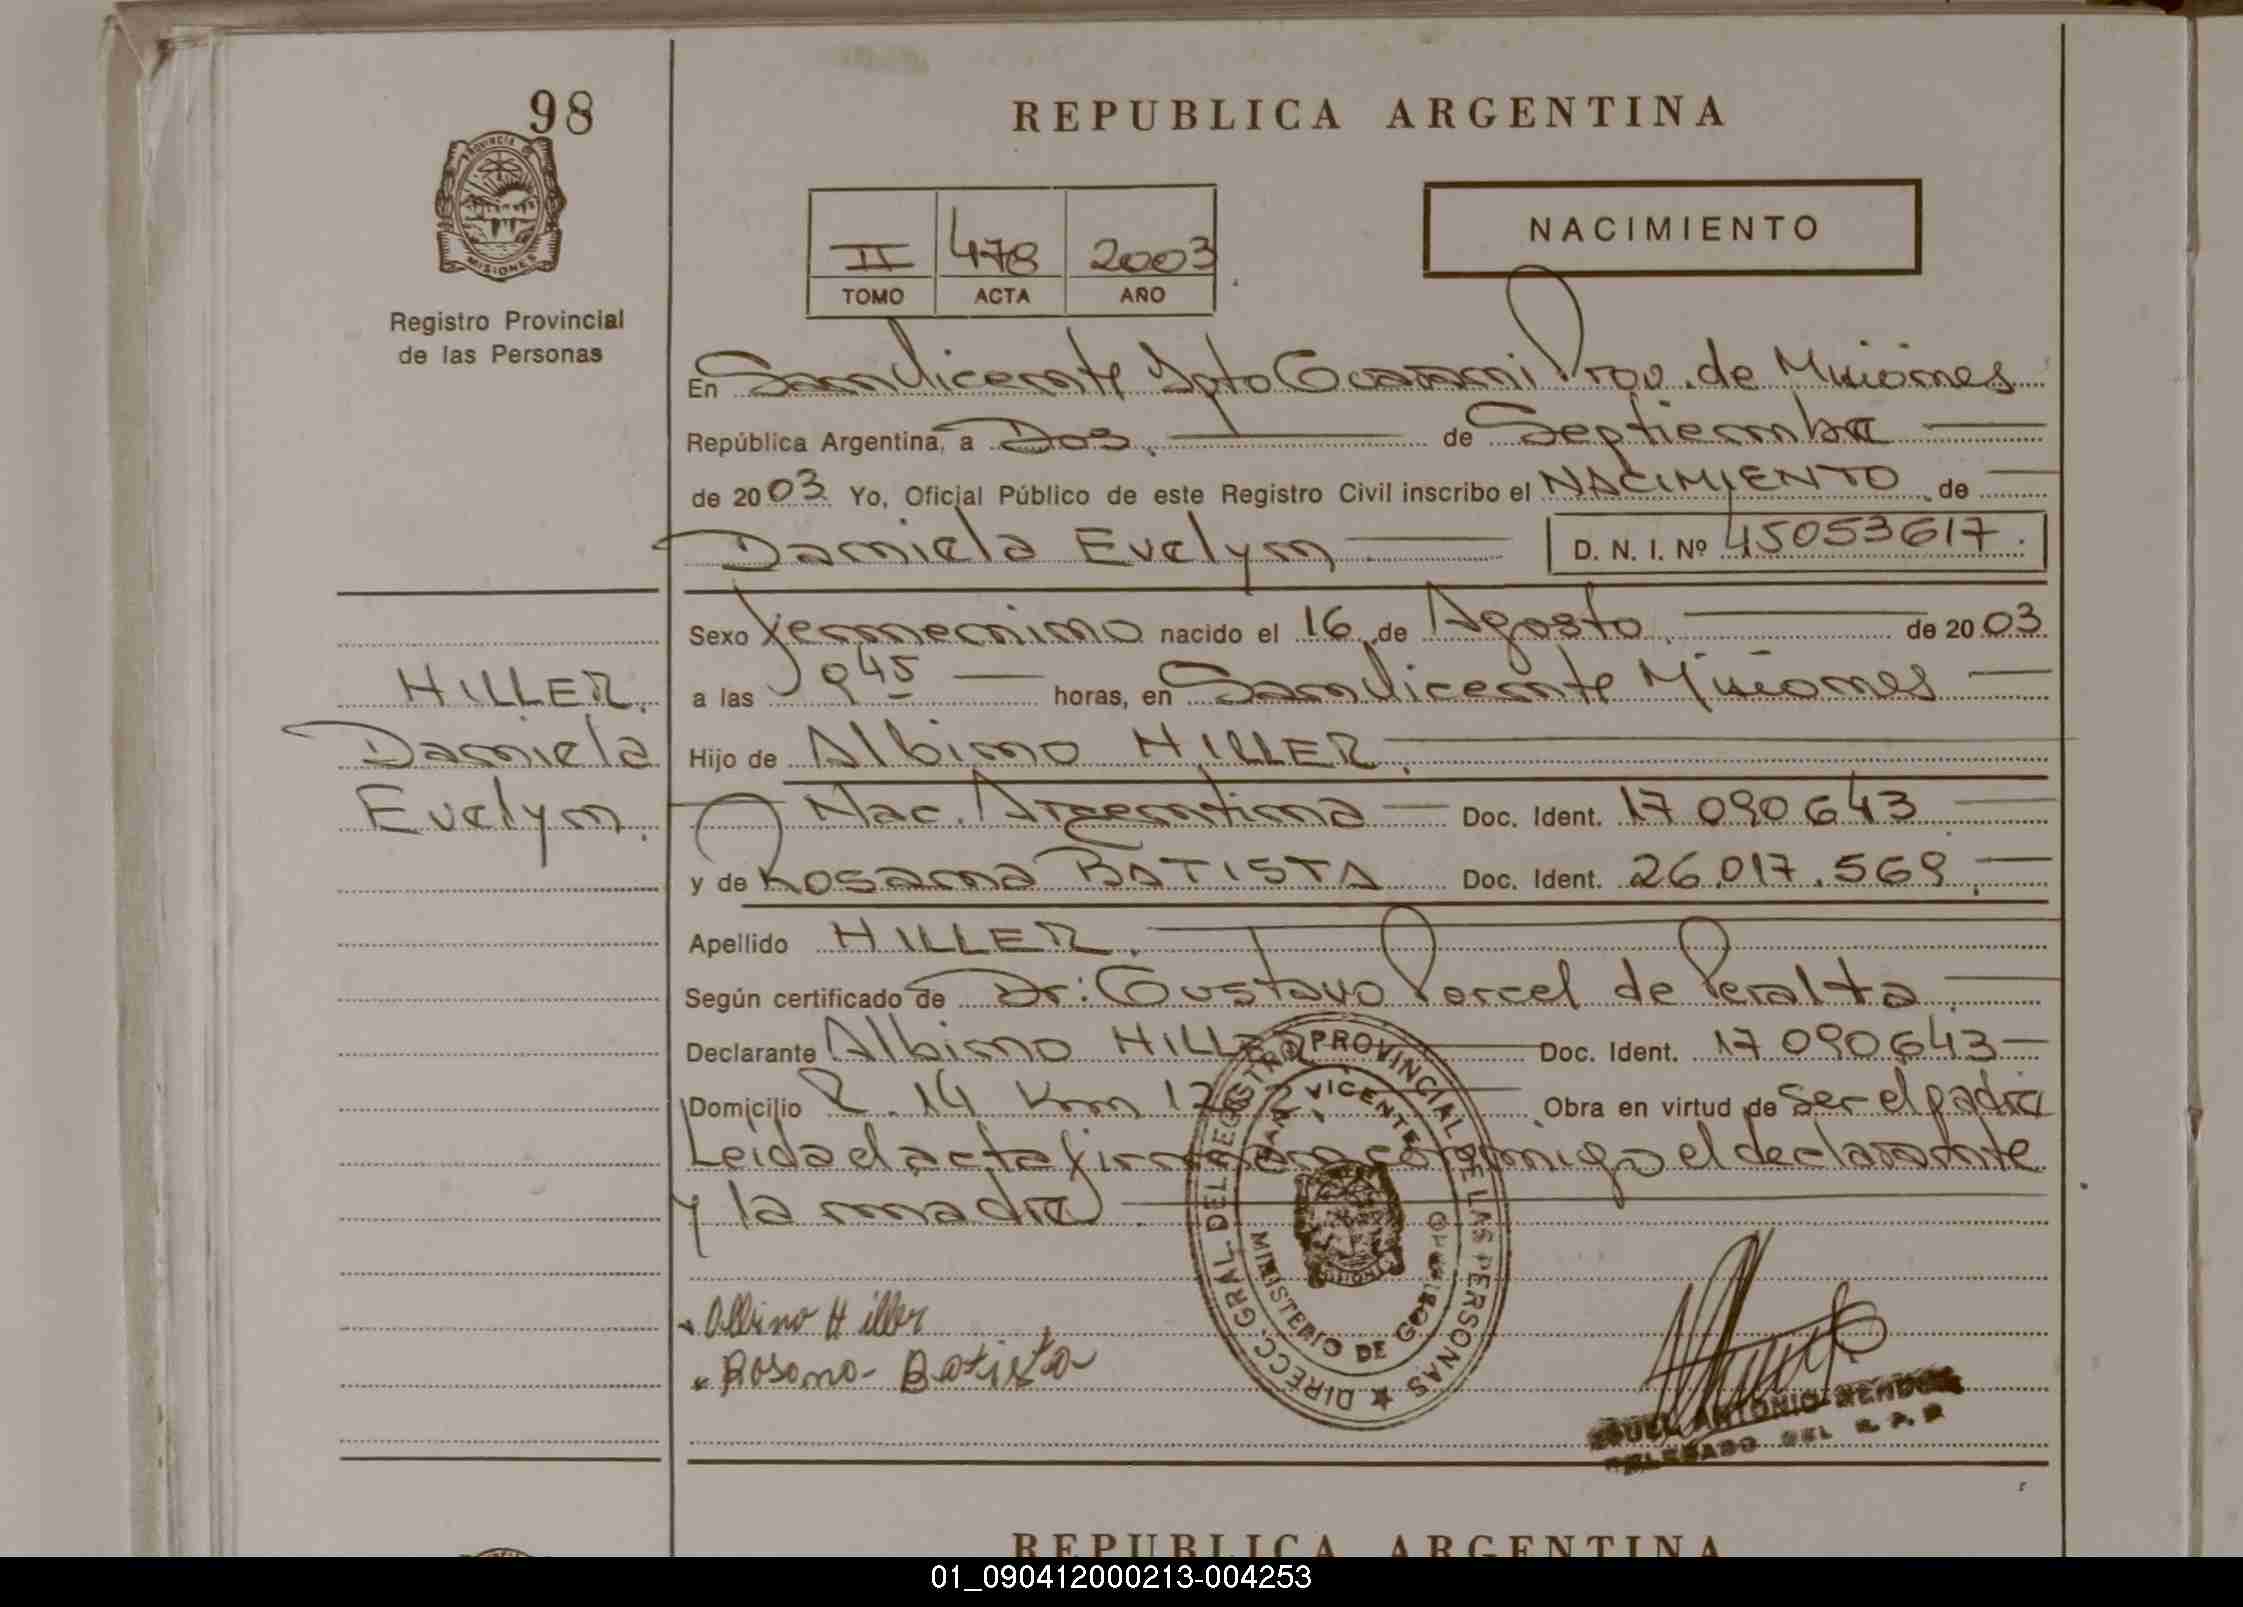 98
PROVINCIA DE
MISIONES
Registro Provincial
de las Personas
REPUBLICA ARGENTINA
II 478 2003
TOMO ACTA AÑO
NACIMIENTO
En San Vicente Dpto Guarani Prov. de Misiones
República Argentina, a Dos. de Septiembre
de 2003 Yo, Oficial Público de este Registro Civil inscribo el NACIMIENTO de
Daniela Evelyn D. N. I. Nº 45053617.
Sexo femenino nacido el 16 de Agosto de 2003
a las 9 45 horas, en San Vicente Misiones
Hijo de Albino HILLER.
Nac. Argentina Doc. Ident. 17 090 643
y de Rosana BATISTA Doc. Ident. 26.017.569.
Apellido HILLER.
Según certificado de Dr: Gustavo Porcel de Peralta
Declarante Albino HILLER Doc. Ident. 17 090 643
Domicilio R. 14 Km Obra en virtud de ser el padre
Leida el acta firman conmigo el declarante
y la madre
HILLER.
Daniela
Evelyn.
Albino Hiller
Rosana Batista
DIRECC. GRAL. DEL REGISTRO PROVINCIAL DE LAS PERSONAS
SAN VICENTE
MINISTERIO DE GOBIERNO
ANTONIO
DELEGADO DEL R. P. P.
REPUBLICA ARGENTINA
01_090412000213-004253